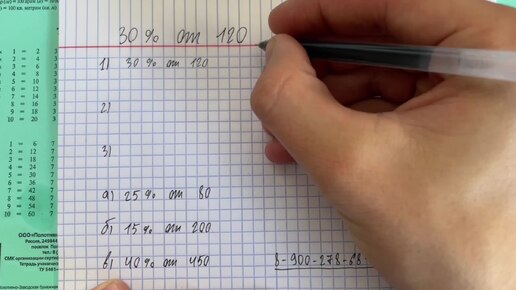 30 % от 120
1) 30 % от 120
2)
3)
а) 25 % от 80
б) 15 % от 200
в) 40 % от 450
8-900-278-68-
× 1 = 2
× 2 = 4
× 3 = 6
× 4 = 8
× 5 = 10
× 6 = 12
× 7 = 14
× 8 = 16
× 9 = 18
× 10 = 20
× 1 = 6
× 2 = 12
× 3 = 18
× 4 = 24
× 5 = 30
× 6 = 36
× 7 = 42
× 8 = 48
× 9 = 54
× 10 = 60
ООО«Полотняно
Россия, 249844